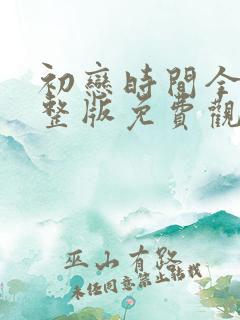 初戀時間全
整版免費觀
巫山有路
未經同意禁止轉載